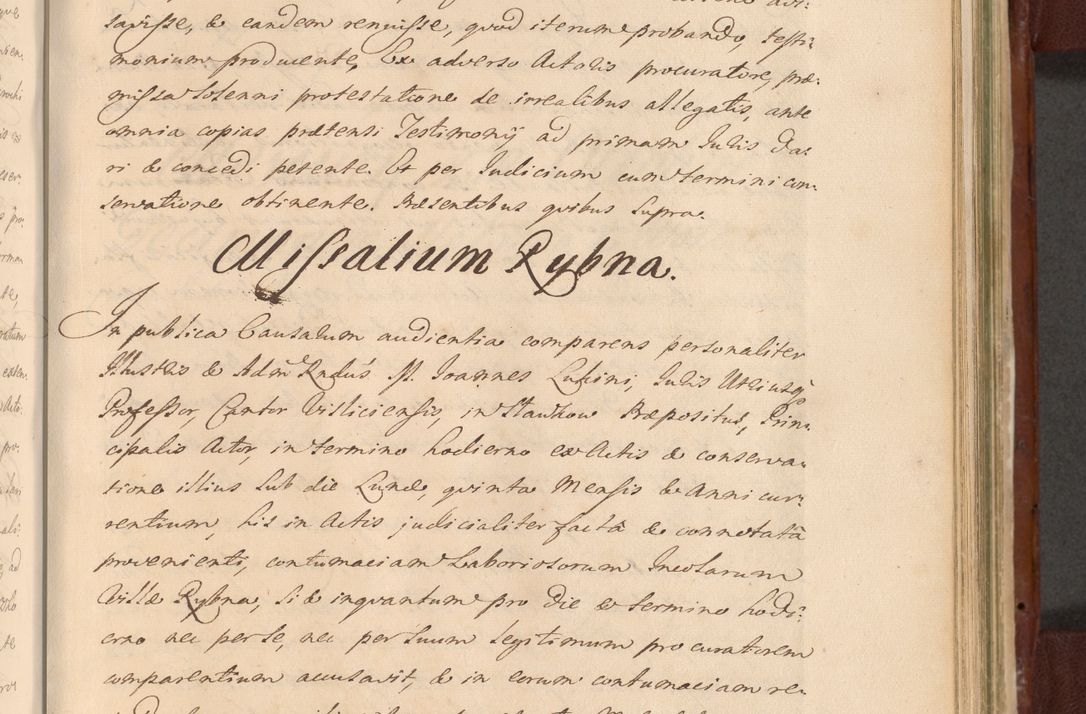 savisse, & eandem renuisse, quod iterum probando, testi:
monium producente, Ex adverso Actalis procuratore, præ:
missa solenni protestatione de irrealibus allegatis, ante
omnia copias prætensi Testimonij ad primam Iuris da:
ri & concedi petente. Et per Iudicium cum termini con
servatione obtinente. Præsentibus quibus supra.
Missalium Rybna.
In publica Causarum audientia comparens personaliter
Illustris & Adm Rndus M. Ioannes Lukini, Iuris Utriusq
Professor, Cantor Visliciensis, in Præpositus, Prin:
cipalis Actor, in termino hodierno ex Actis & conserva:
tione illius sub die Lunæ, quinta Mensis & Anni cur:
rentium, his in Actis judicialiter factâ & connotatâ
provenienti, contumaciam Laboriosorum Incolarum
Villæ Rybna, si & inquantum pro die & termino hodi:
erno nec per se, nec per suum legitimum procuratorem
comparentium accusavit, & in eorum contumaciam re: